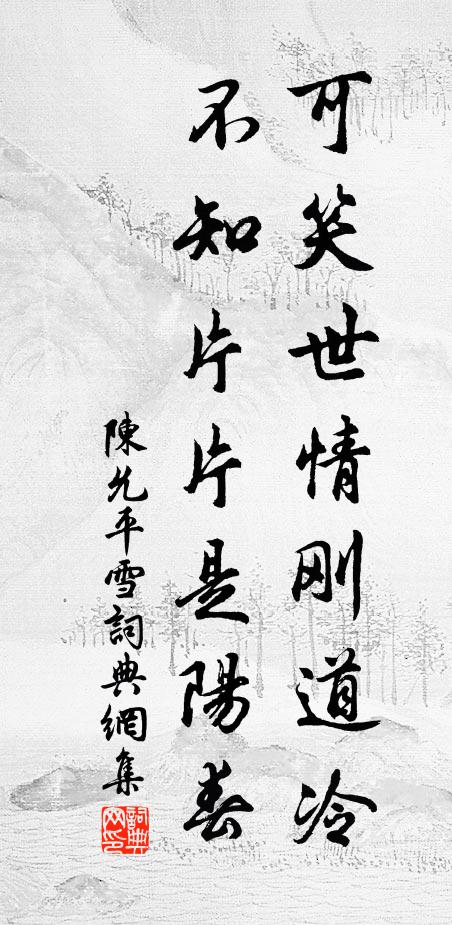 可笑世情刚道冷
不知片片是陽春
陳允平雪詞典網集
詞典网印